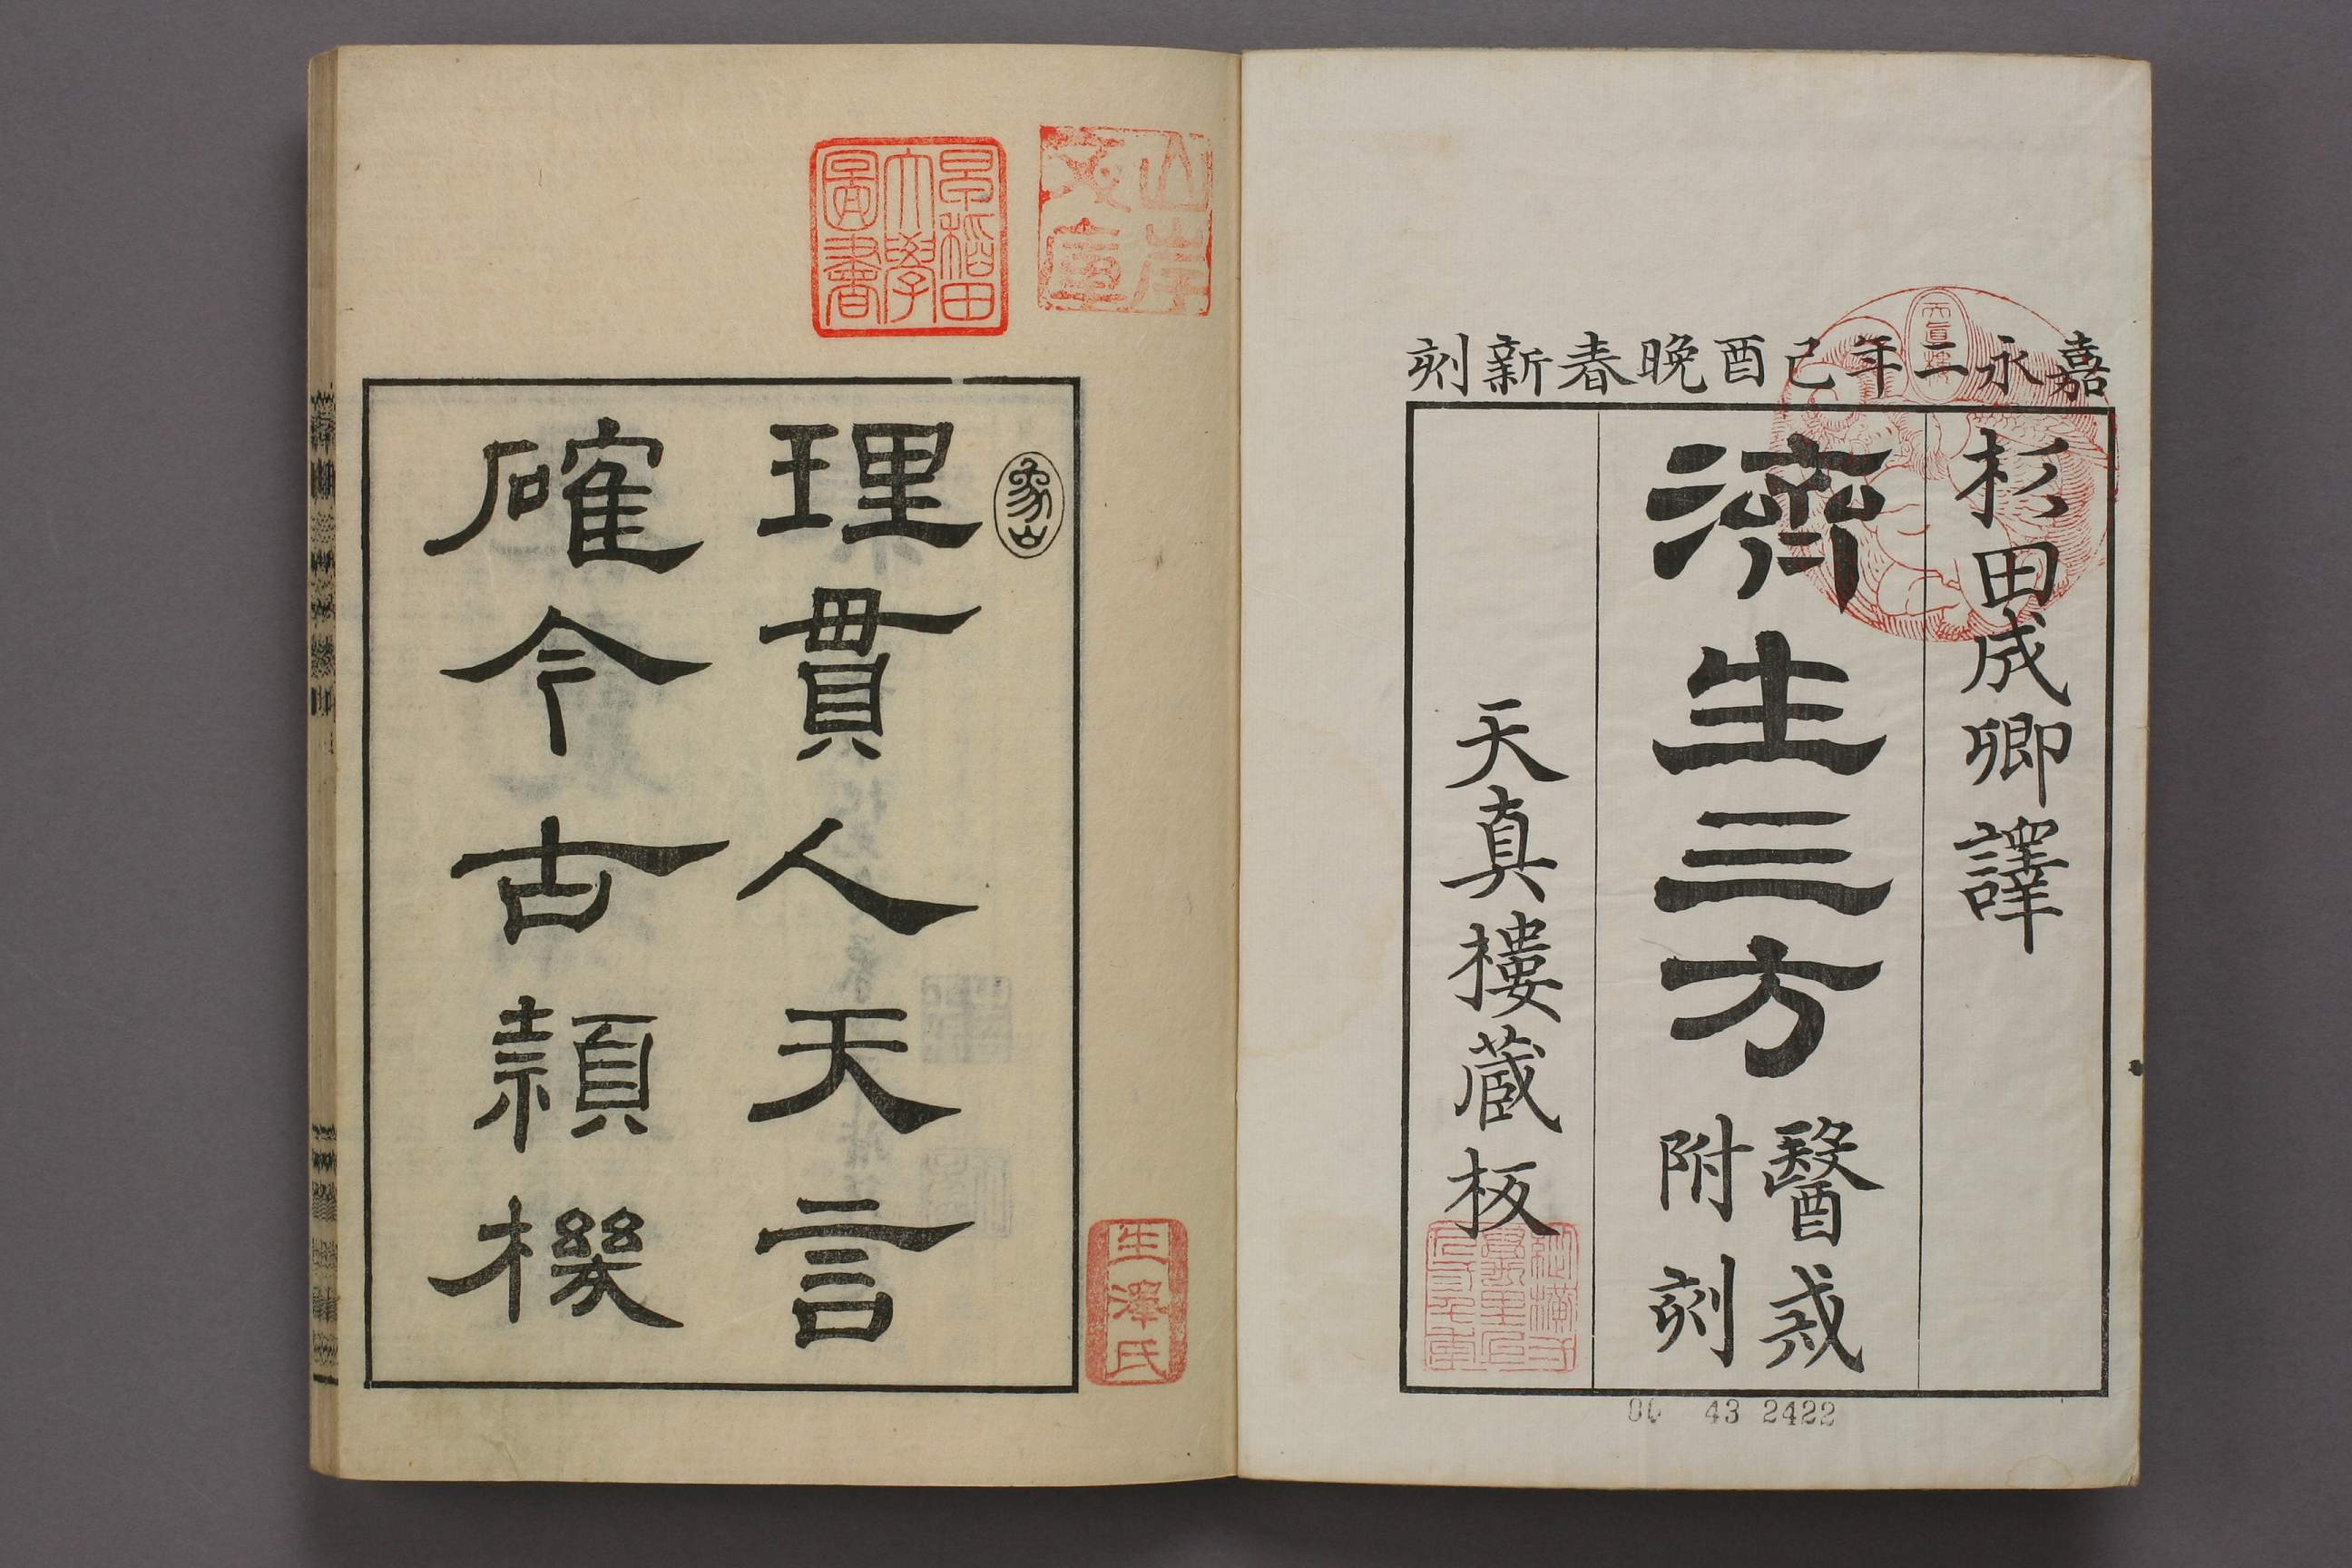 嘉永二年己酉晩春新刻
杉田成卿譯
濟生三方
醫戒
附刻
天真樓蔵板
43 2422
山岸文庫
早稲田大學圖書
象山
理貫人天言
確今古機
生澤氏